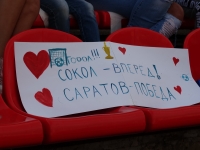 Гооол!!!
СОКОЛ - ВПЕРЕД!
САРАТОВ-ПОБЕДА